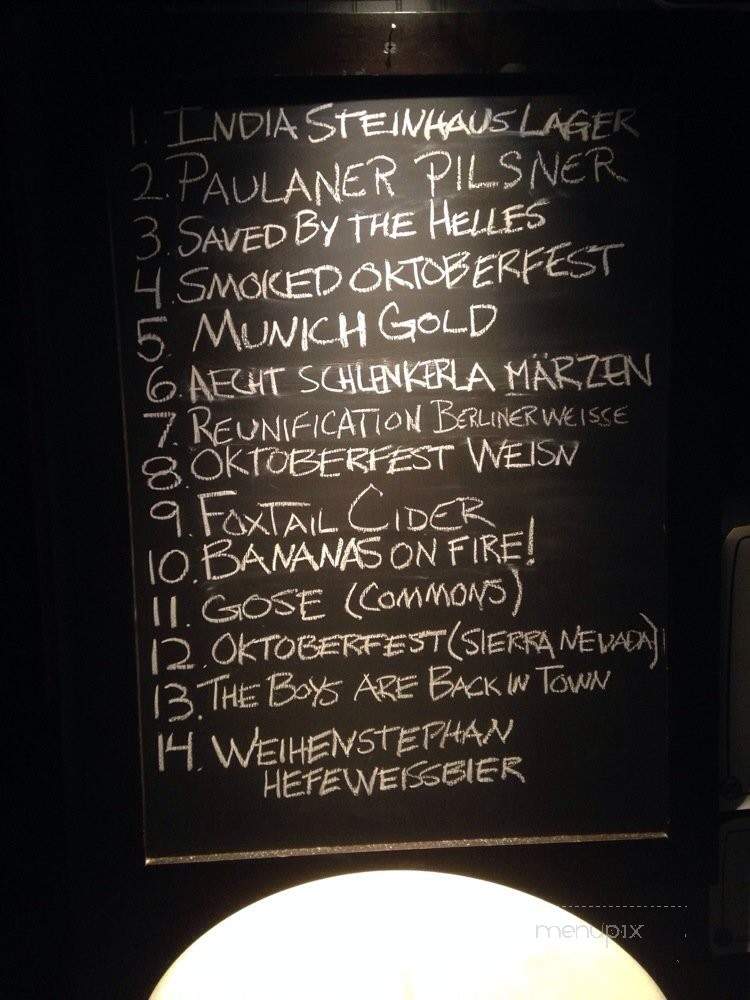 1. INDIA STEINHAUS LAGER
2. PAULANER PILSNER
3. SAVED BY THE HELLES
4. SMOKED OKTOBERFEST
5. MUNICH GOLD
6. AECHT SCHLENKERLA MÄRZEN
7. REUNIFICATION BERLINER WEISSE
8. OKTOBERFEST WEISN
9. FOXTAIL CIDER
10. BANANAS ON FIRE!
11. GOSE (COMMONS)
12. OKTOBERFEST (SIERRA NEVADA)
13. THE BOYS ARE BACK IN TOWN
14. WEIHENSTEPHAN
HEFEWEISSBIER
menupix